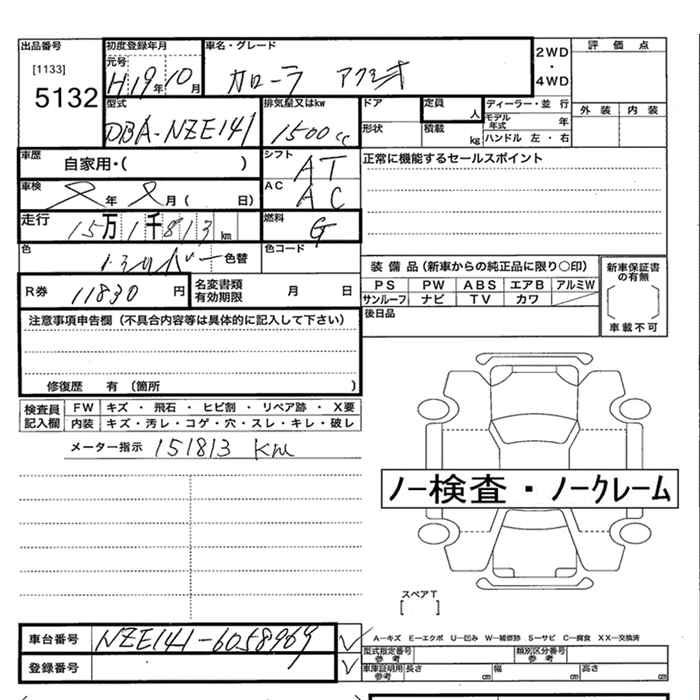 出品番号 初度登録年月 車名・グレード 2WD 評価点
[1133] 元号 ・
5132 H19年10月 カローラ アクシオ 4WD
型式 排気量又はkw ドア 定員 人 ディーラー・並行 外装 内装
DBA-NZE141 1500cc 形状 積載 kg モデル年式 年
ハンドル 左・右
車歴 自家用・( ) シフト AT 正常に機能するセールスポイント
車検 年 月( 日) AC AC
走行 15万1千813km 燃料 G
色 色替 色コード 装備品(新車からの純正品に限り○印) 新車保証書の有無
R券 11830円 名変書類有効期限 月 日 PS PW ABS エアB アルミW
サンルーフ ナビ TV カワ
注意事項申告欄(不具合内容等は具体的に記入して下さい) 後日品 車載不可
修復歴 有(箇所 )
検査員記入欄 FW キズ・飛石・ヒビ割・リペア跡・X要
内装 キズ・汚レ・コゲ・穴・スレ・キレ・破レ
メーター指示 151813 km
ノー検査・ノークレーム
スペアT
[ ]
車台番号 NZE141-6058969 A-キズ E-エクボ U-凹み W-補修跡 S-サビ C-腐食 XX-交換済
登録番号 型式指定番号 参考 類別区分番号 参考
車庫証明用 参考 長さ cm 幅 cm 高さ cm